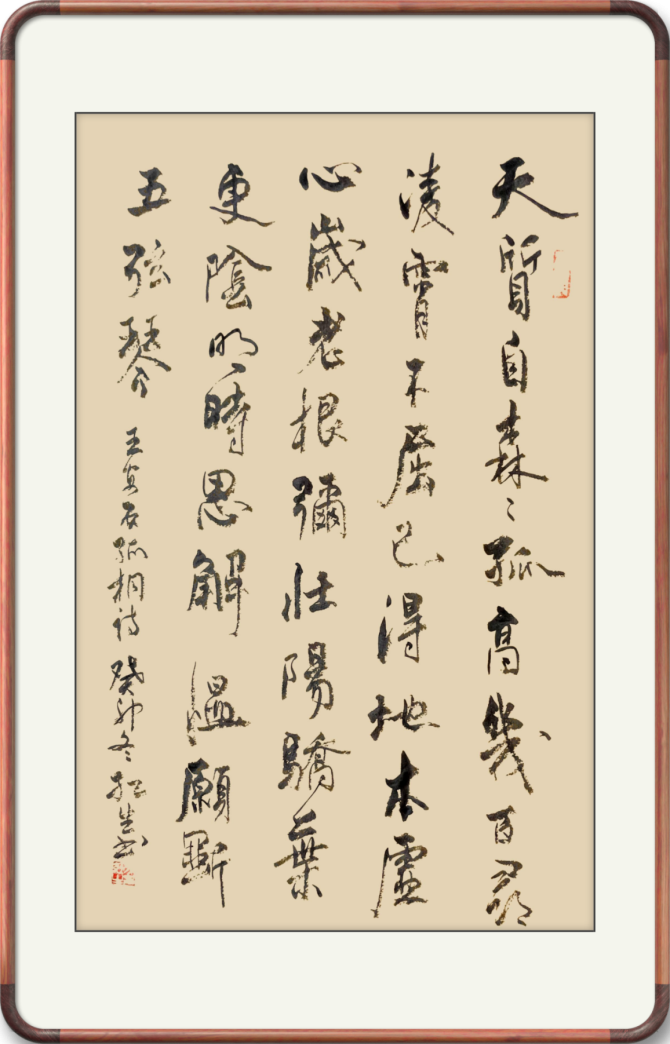 天質自森〻孤高幾百尋
凌霄不屈己得地本虛
心歲老根彌壯陽驕葉
更陰明時思解慍願斲
五弦琴 王安石孤桐詩 癸卯冬 松生書